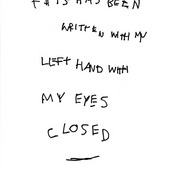 THIS HAS BEEN
WRITTEN WITH MY
LEFT HAND WITH
MY EYES
CLOSED